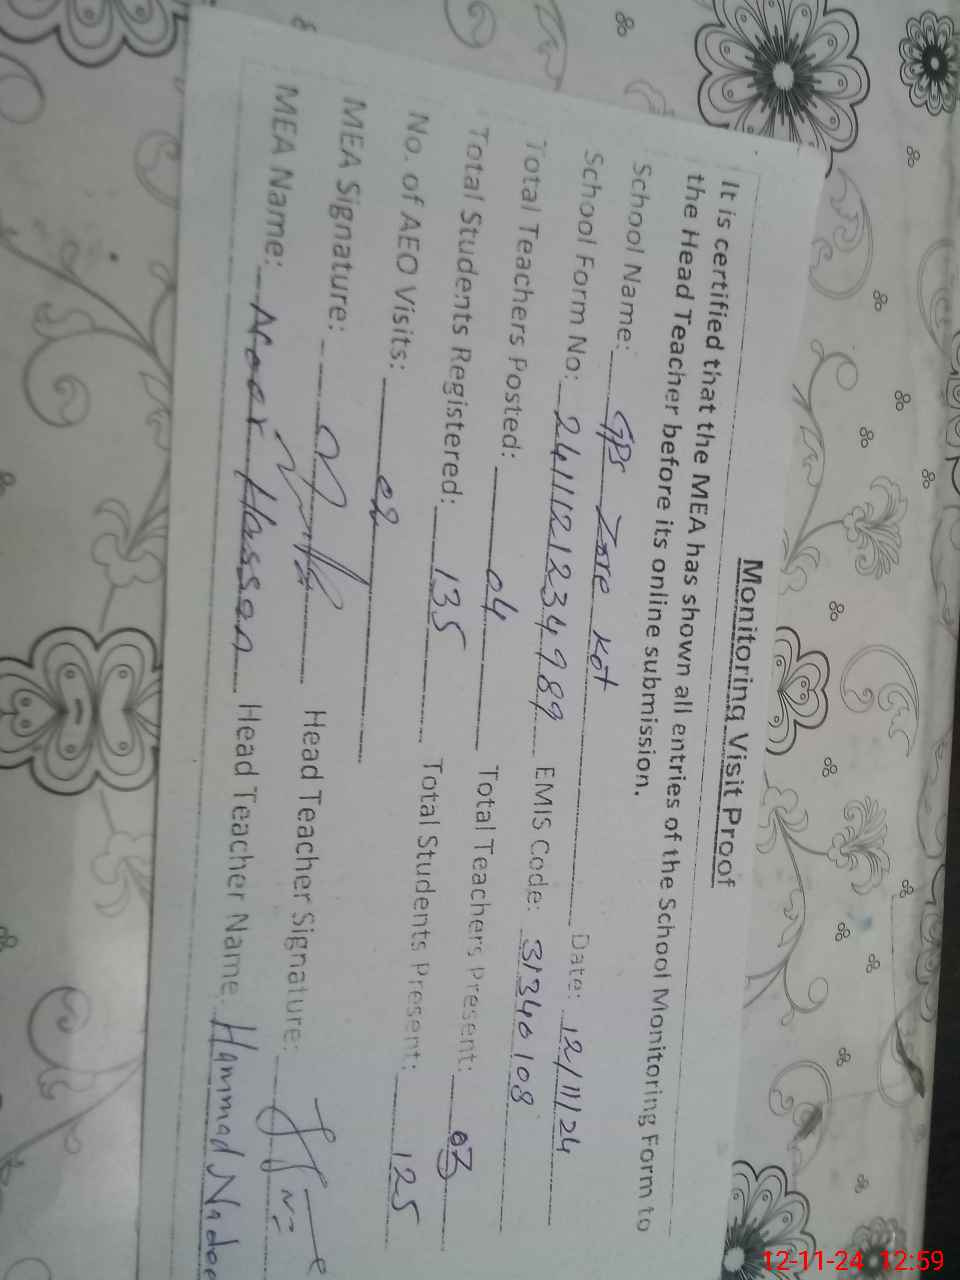 Monitoring Visit Proof
It is certified that the MEA has shown all entries of the School Monitoring Form to
the Head Teacher before its online submission.
School Name: GPS Kot Date: 12/11/24
School Form No: EMIS Code: 31340108
Total Teachers Posted: 04 Total Teachers Present: 03
Total Students Registered: 135 Total Students Present: 125
No. of AEO Visits: 02
MEA Signature: Head Teacher Signature:
MEA Name: Noor Hassan Head Teacher Name: Hammad
12-11-24 12:59